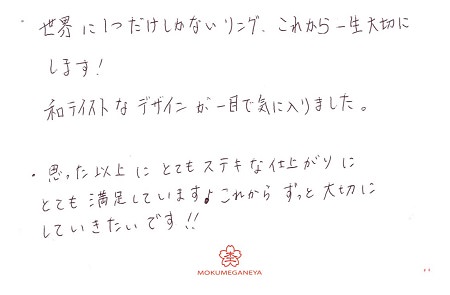 ・世界に1つだけしかないリング、これから一生大切に
します!
和テイストなデザインが一目で気に入りました。
・思った以上にとてもステキな仕上がりに
とても満足しています♪これからずっと大切に
していきたいです!!
MOKUMEGANEYA